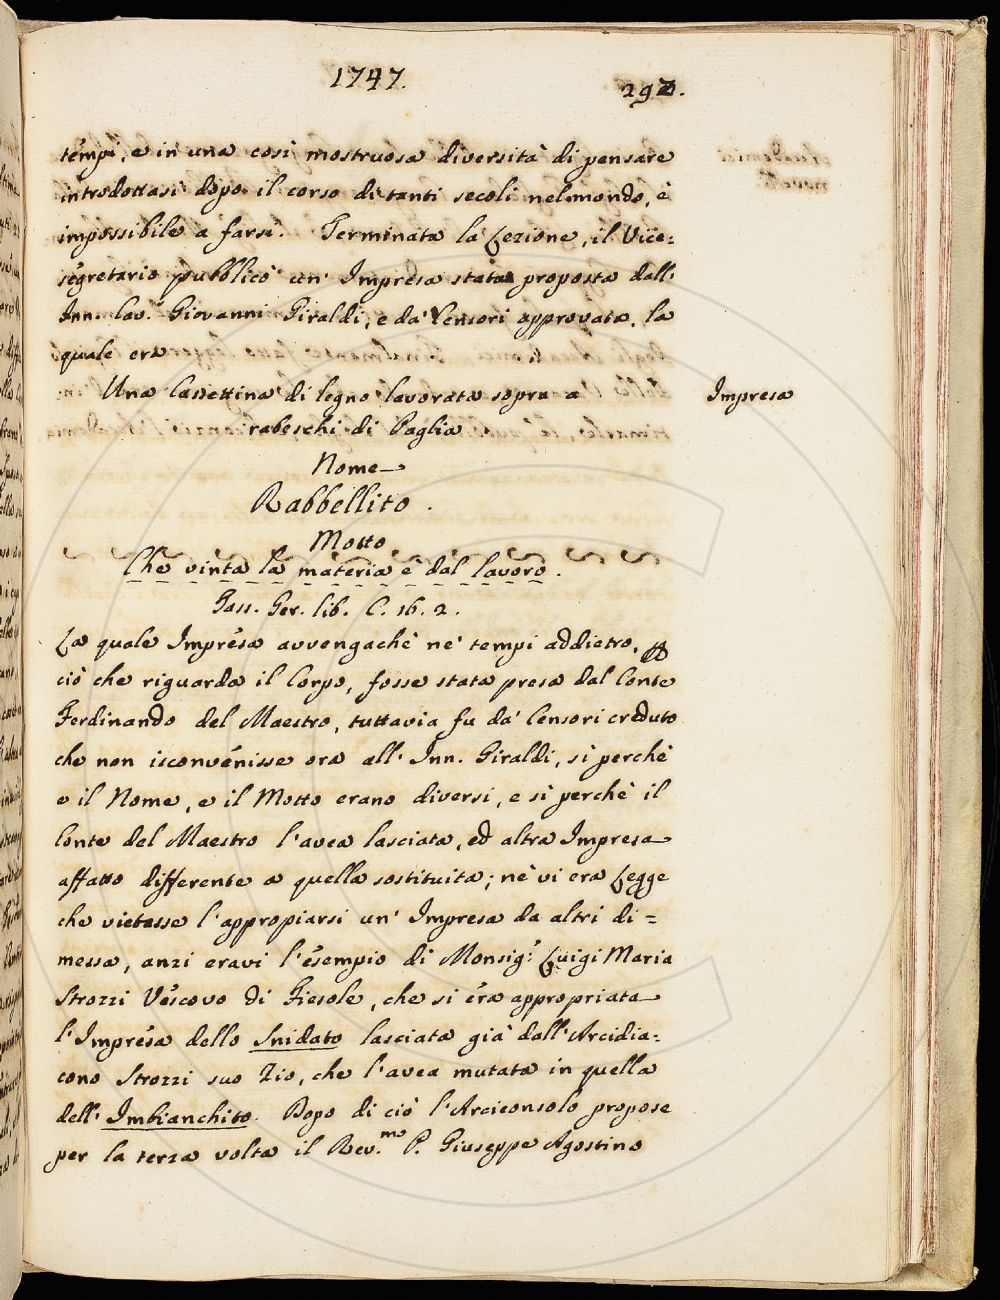 1747.
297.
tempi, e in una così mostruosa diversità di pensare
introdottasi dopo il corso di tanti secoli nel mondo, è
impossibile a farsi. Terminata la Lezione, il Vice=
segretario pubblicò un' Impresa stata proposta dall'
Inn. Cav.r Giovanni Giraldi, e da' Censori approvata. la
quale era
Una Cassettina di legno lavorata sopra a
rabeschi di Paglia
Impresa
Nome
Rabbellito.
Motto
Che vinta la materia è dal lavoro.
Tass. Ger. lib. C. 16. 2.
La quale Impresa avvengachè ne' tempi addietro,
ciò che riguarda il Corpo, fosse stata presa dal Conte
Ferdinando del Maestro, tuttavia fu da' Censori creduto
che non isconvenisse ora all' Inn. Giraldi, sì perchè
e il Nome, e il Motto erano diversi, e sì perchè il
Conte del Maestro l'avea lasciata, ed altra Impresa
affatto differente a quella sostituita; nè vi era Legge
che vietasse l'appropiarsi un' Impresa da altri di=
messa, anzi eravi l'esempio di Monsig.r Luigi Maria
Strozzi Vescovo di Fiesole, che si era appropriata
l'Impresa dello Snidato lasciata già dall'Arcidia=
cono Strozzi suo Zio, che l'avea mutata in quella
dell' Imbianchito. Dopo di ciò l'Arciconsolo propose
per la terza volta il Rev.mo P. Giuseppe Agostino